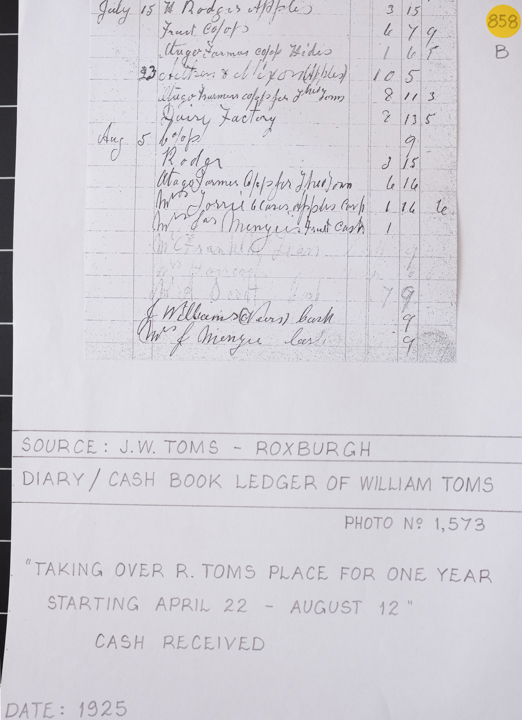 July 15 H Rodger apples 3 15
Fruit Co/op 6 7 9
Otago Farmers co/op Hides 1 6 5
23 & Nixon (Apples) 10 5
Otago Farmers co/op for Toms 8 11 3
Dairy Factory 2 13 5
Aug 5 Co/op 9
Rodger 3 15
Otago Farmers Co/op for Toms 6 16
Mrs Torrie 6 cases apples Cash 1 16
Mrs Jas Menzie Fruit Cash 1
7 9
J Williams (Pears) Cash 9
Mrs J Menzie Cash 9
858
B
SOURCE: J.W. TOMS - ROXBURGH
DIARY/CASH BOOK LEDGER OF WILLIAM TOMS
PHOTO Nº 1,573
"TAKING OVER R. TOMS PLACE FOR ONE YEAR
STARTING APRIL 22 - AUGUST 12"
CASH RECEIVED
DATE: 1925